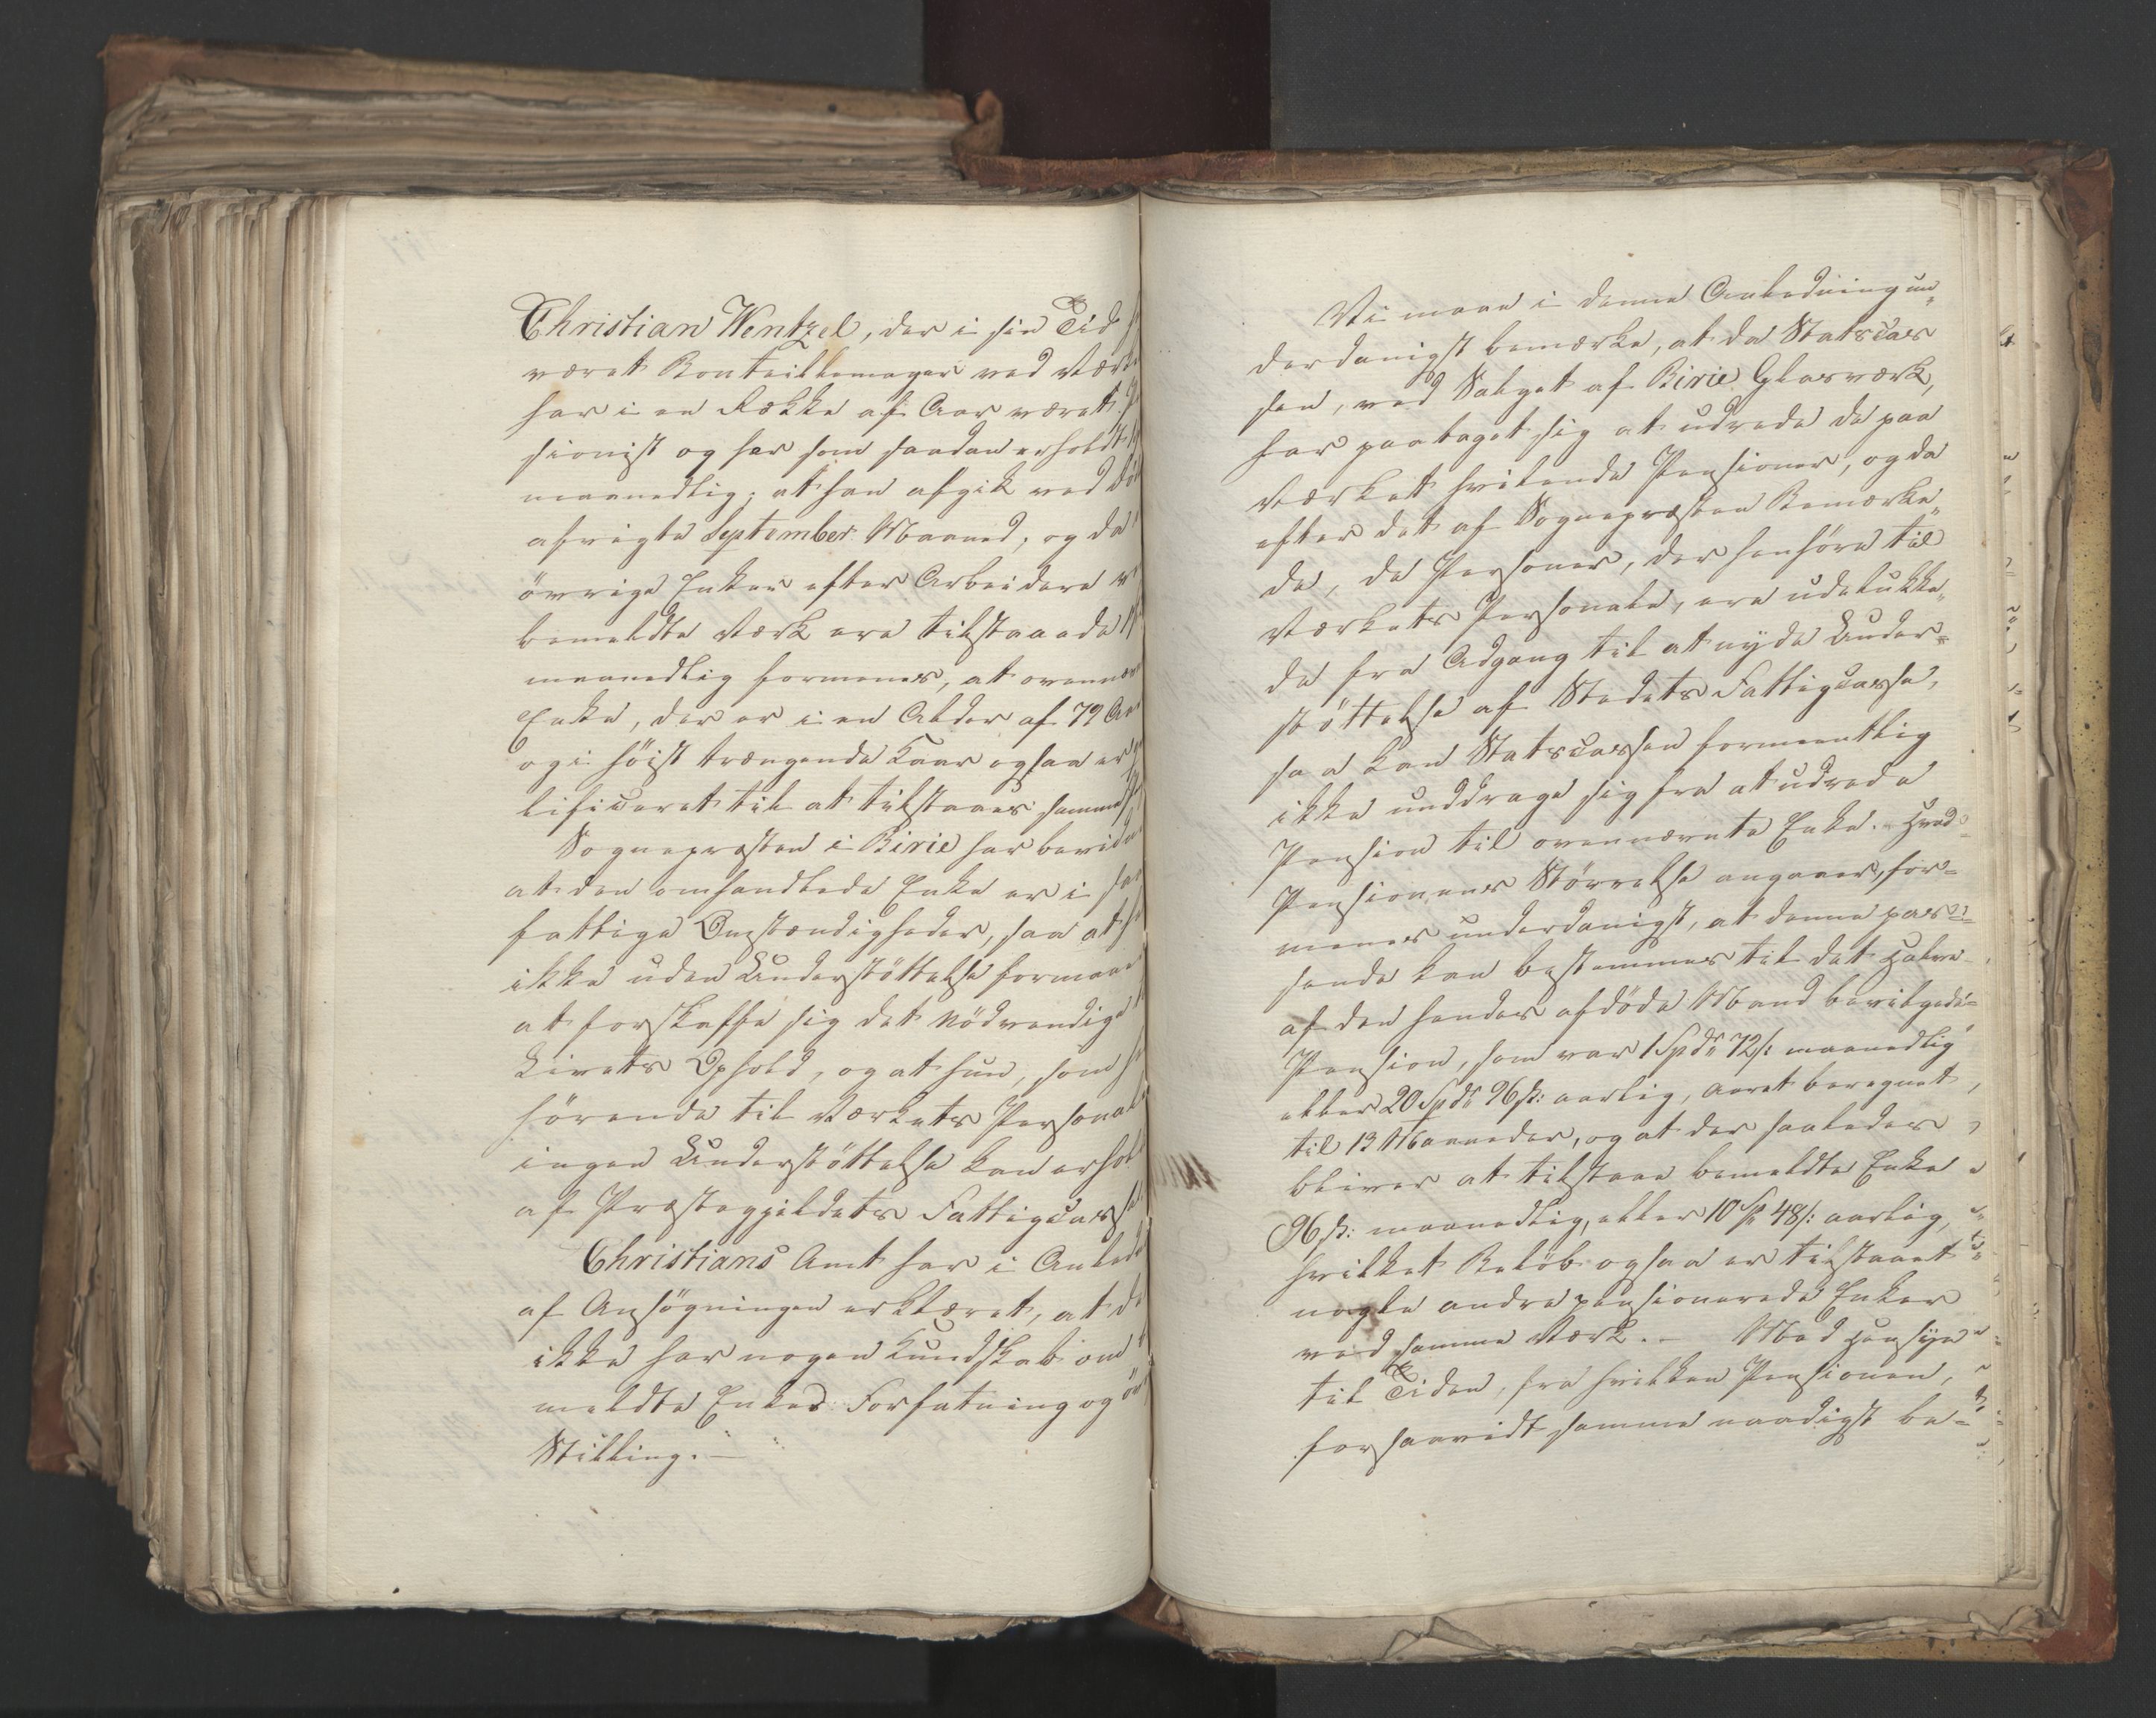 Christian Wentzel, der i sin Tid
været Bouteillemager ved Værk
har i en Række af Aar været
sionist og har som saadan erholdt
maanedlig; at han afgik ved
afvigte September Maaned; og da
övrige Enker efter Arbeidere
bemeldte Værk ere tilstaaede
maanedlig formenes, at ovennæv
Enke, der er i en Alder af 79 Aar
og i höist trængende Kaar ogsaa er
lificeret til at tilstaaes samme
Sognepræsten i Birie har bevidn
at den omhandlede Enke er i saa
fattige Omstændigheder, saa at
ikke uden Understöttelse formaaer
at forskaffe sig det nödvendige
Livets Ophold, og at hun, som
hörende til Værkets Personale
ingen Understöttelse kan erhol
af Præstegjeldets Fattigcasse
Christians Amt har i Anled
af Ansögningen erklæret, at de
ikke har nogen Kundskab om
meldte Enkes Forfatning og
Stilling. —
Vi maae i denne Anledning un„
derdanigst bemærke, at da Statscas
sen, ved Salget af Birie Glasværk,
har paataget sig at udrede de paa
Værket hvilende Pensioner, og da
efter det af Sognepræsten Bemærke„
de, de Personer, der henhöre til
Værkets Personale, ere udelukke„
de fra Adgang til at nyde Under=
stöttelse af Stedets Fattigcasse,
saa kan Statscassen formeentlig
ikke unddrage sig fra at udrede
Pension til ovennævnte Enke. Hvad
Pensionens Störrelse angaaer, for=
menes underdanigst, at denne pas=
sende kan bestemmes til det Halve
af den hendes afdöde Mand bevilgede
Pension, som var 1 Spdr 72 s: maanedlig
eller 20 Spdr 96 s: aarlig, Aaret beregnet
til 13 Maaneder, og at der saaledes
bliver at tilstaae bemeldte Enke
96 s: maanedlig, eller 10 Sp 48 s: aarlig,
hvilket Belöb ogsaa er tilstaaet
nogle andre pensionerede Enker
ved samme Værk. — Med Hensyn
til Tiden, fra hvilken Pensionen,
forsaavidt samme naadigst be=